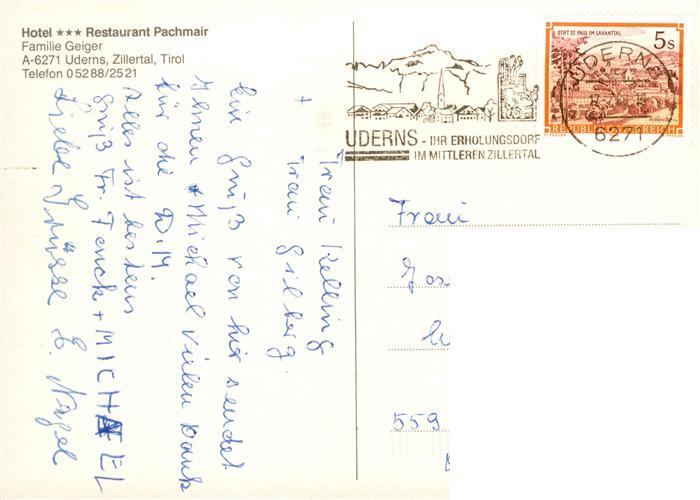 Hotel ★★★ Restaurant Pachmair
Familie Geiger
A-6271 Uderns, Zillertal, Tirol
Telefon 0 52 88/25 21
Frau Kelling
+ Frau Gilberg.
Ein Gruß von hier sendet
Ihnen + Michael vielen Dank
für die D.M.
Alles ist bestens
Gruß Fr. Fenck + MICHAEL
Liebe Grüsse E. Nagel
UDERNS - IHR ERHOLUNGSDORF
IM MITTLEREN ZILLERTAL
STIFT ST. PAUL IM LAVANTTAL
5 S
REPUBLIK ÖSTERREICH
UDERNS
6271
Frau
559